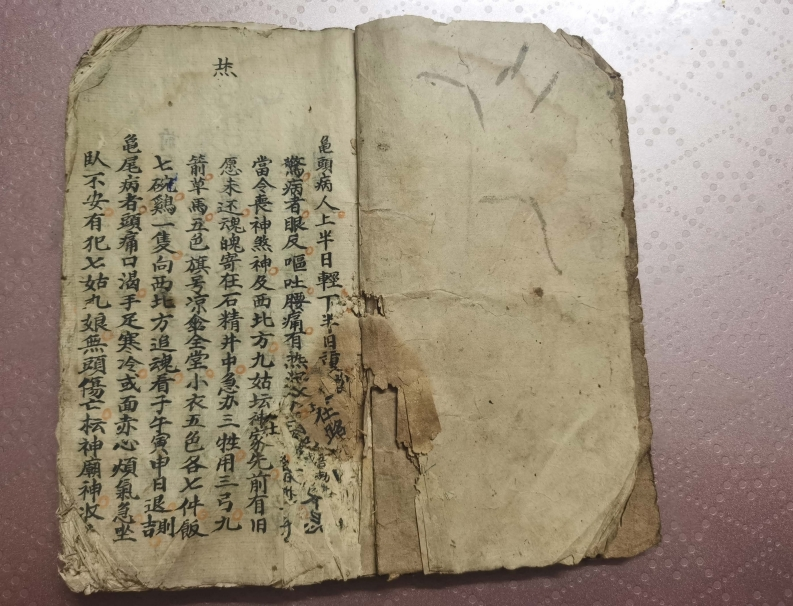 𤇆
龜頭病人上半日輕下半日
驚病者眼反嘔吐腰痛有热
當令喪神煞神及西北方九姑坛神家先前有旧
愿未还魂魄寄在石精井中急亦三牲用三弓九
箭草馬五色旗号凉傘全堂小衣五色各七件飯
七碗鷄一隻向西北方追魂看子午寅申日退則吉
龜尾病者頭痛口渴手足寒冷或面赤心煩氣急坐
臥不安有犯七姑九娘無頭傷亡坛神廟神